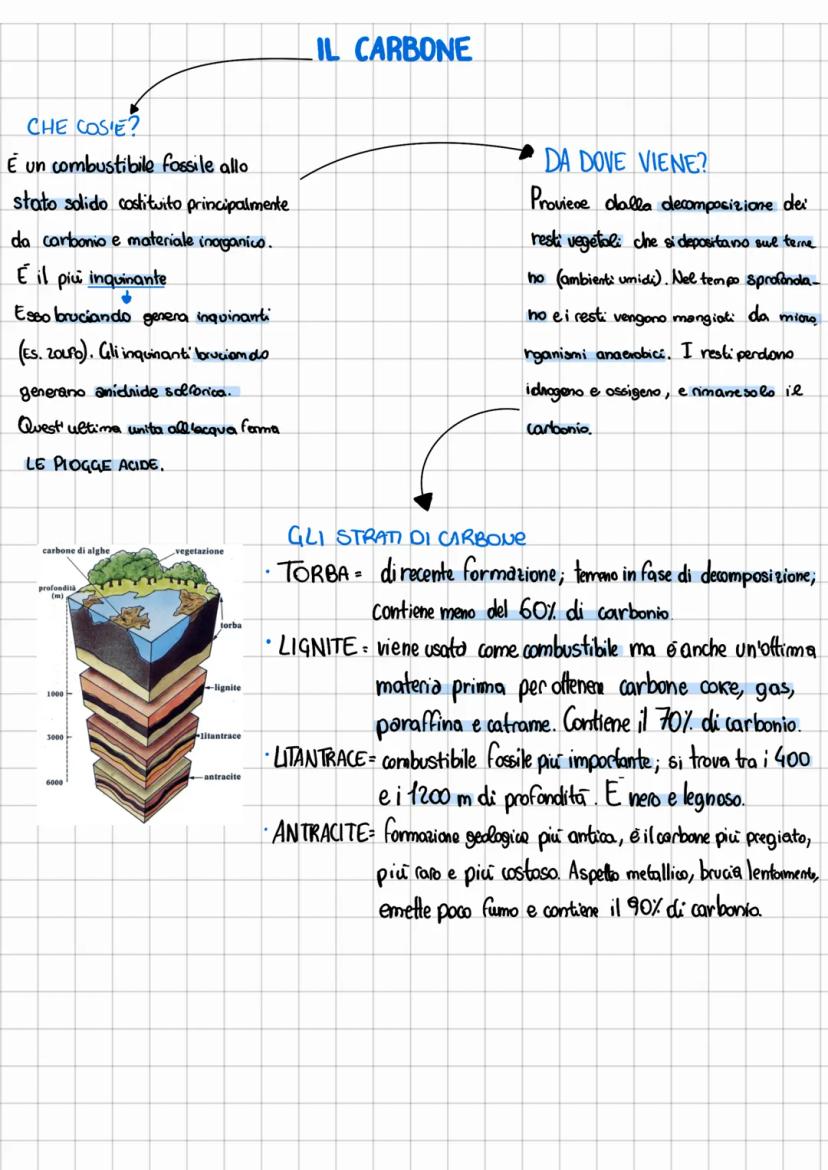 IL CARBONE
CHE COS'È?
È un combustibile fossile allo
stato solido costituito principalmente
da carbonio e materiale inorganico.
È il più inquinante
Esso bruciando genera inquinanti
(ES. ZOLFO). Gli inquinanti bruciando
generano anidride solforica.
Quest'ultima unita all'acqua forma
LE PIOGGE ACIDE.
DA DOVE VIENE?
Proviene dalla decomposizione dei
resti vegetali che si depositano sul terre
no (ambienti umidi). Nel tempo sprofonda-
no e i resti vengono mangiati da micro
rganismi anaerobici. I resti perdono
idrogeno e ossigeno, e rimane solo il
carbonio.
GLI STRATI DI CARBONE
· TORBA = di recente formazione; terreno in fase di decomposizione;
contiene meno del 60% di carbonio
· LIGNITE = viene usato come combustibile ma è anche un'ottima
materia prima per ottenere carbone coke, gas,
paraffina e catrame. Contiene il 70% di carbonio.
· LITANTRACE = combustibile fossile più importante; si trova tra i 400
e i 1200 m di profondità. È nero e legnoso.
· ANTRACITE = formazione geologica più antica, è il carbone più pregiato,
più raro e più costoso. Aspetto metallico, brucia lentamente,
emette poco fumo e contiene il 90% di carbonio.
carbone di alghe
vegetazione
profondità
(m)
torba
lignite
1000
litantrace
3000
antracite
6000